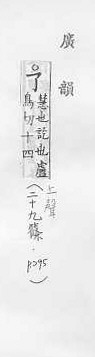 廣韻
了
慧也訖也盧
鳥切十四
(上聲
二十九篠·
p295)